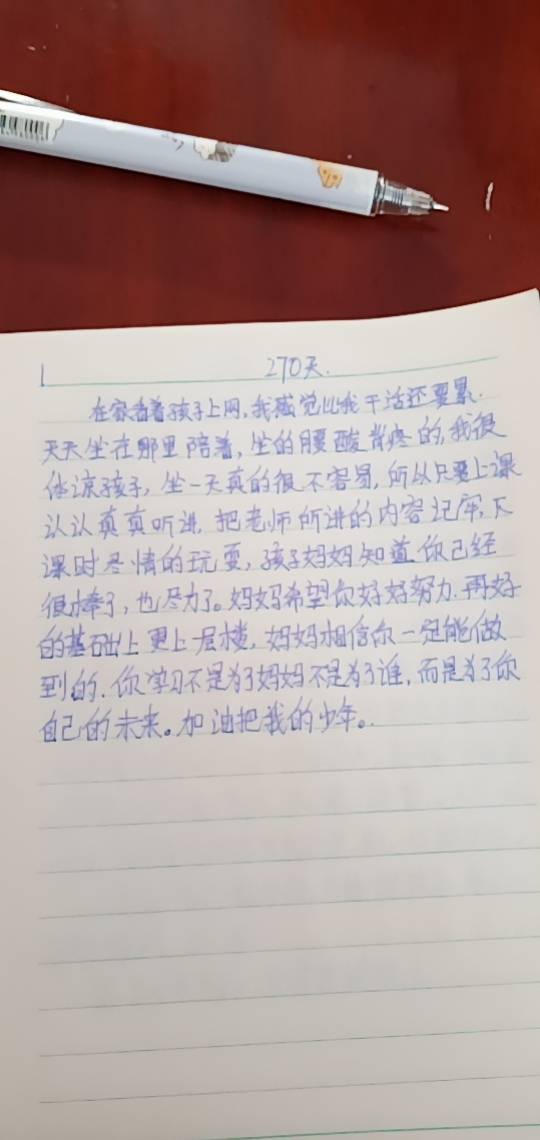 270天.
在家看着孩子上网,我感觉比我干活还要累.
天天坐在那里陪着,坐的腰酸背疼的,我很
体谅孩子,坐一天真的很不容易,所以只要上课
认认真真听讲,把老师所讲的内容记牢,下
课时尽情的玩耍,孩子妈妈知道你已经
很棒了,也尽力了。妈妈希望你好好努力.再好
的基础上更上一层楼,妈妈相信你一定能做
到的.你学习不是为了妈妈不是为了谁,而是为了你
自己的未来。加油把我的少年。